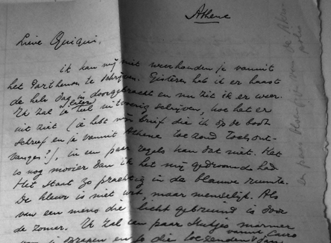 Athene
Lieve Quiqui,
ik kan mij niet weerhouden je vanuit
het Parthenon te schrijven. Gisteren heb ik er haast
de hele dag in doorgebracht en nu zit ik er weer.
Ik zal je later uitvoerig schrijven, hoe het er
uit ziet (ik heb mijn brief die ik op de boot
schreef en je vanuit Athene toezond toch ont-
vangen?), in een paar regels kan dat niet. Het
is nog mooier dan ik het mij gedroomd had.
Het staat zo prachtig in de blauwe ruimte.
De kleur is niet wit, maar menselijk. Als
van een mens die licht gebruind is door
de zomer. Ik zal een paar stukjes marmer